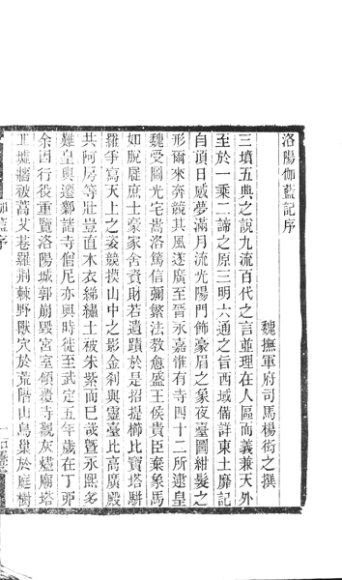 洛陽伽藍記序
魏撫軍府司馬楊衒之撰
三墳五典之說九流百代之言並理在人區而義兼天外
至於一乘二諦之原三明六通之旨西域備詳東土靡記
自頂日感夢滿月流光陽門飾豪眉之象夜臺圖紺髮之
形爾來奔競其風遂廣至晉永嘉惟有寺四十二所逮皇
魏受圖光宅嵩洛篤信彌繁法教愈盛王侯貴臣棄象馬
如脫屣庶士豪家舍資財若遺跡於是招提櫛比寶塔駢
羅爭寫天上之姿競摸山中之影金剎與靈臺比高廣殿
共阿房等壯豈直木衣綈繡土被朱紫而已哉曁永熙多
難皇輿遷鄴諸寺僧尼亦與時徙至武定五年歲在丁卯
余因行役重覽洛陽城郭崩毀宮室傾覆寺觀灰燼廟塔
丘墟牆被蒿艾巷羅荊棘野獸穴於荒階山鳥巢於庭樹
伽藍序
一